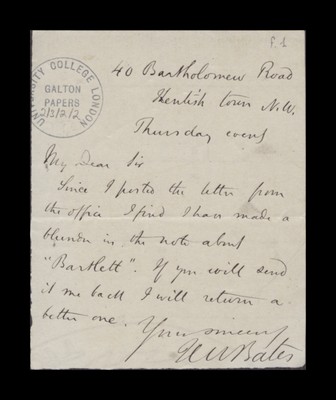 f. 1
UNIVERSITY COLLEGE LONDON
GALTON
PAPERS
2/2/2/2
40 Bartholomew Road
Kentish town N.W.
Thursday eveng
My Dear Sir
Since I posted the letter from
the office I find I have made a
blunder in the note about
"Bartlett". If you will send
it me back I will return a
better one.
Yours sincerely
HWBates